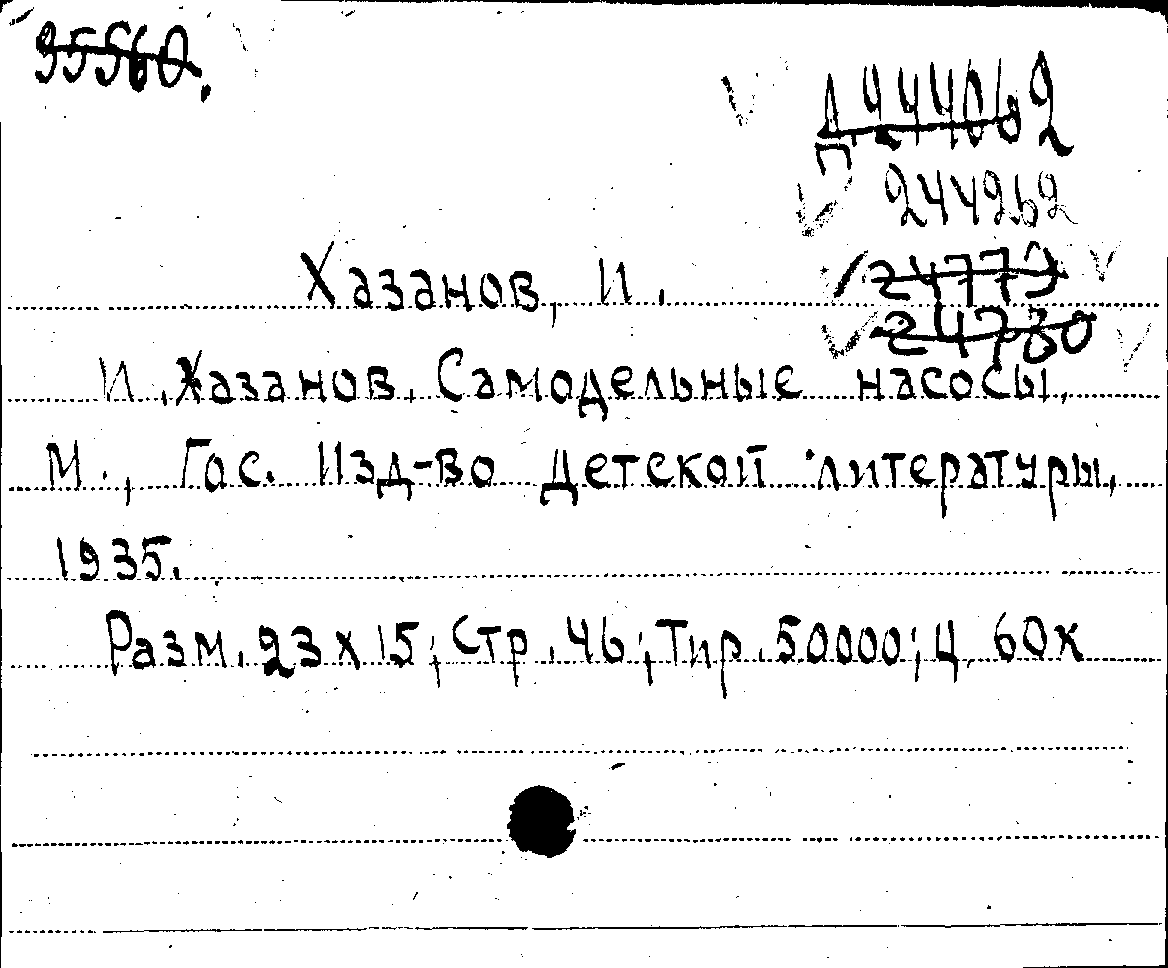 95560.
244262
24779
24780
Хазанов, И.
И. Хазанов. Самодельные насосы,
М., Гос. Изд-во Детской литературы,
1935.
Разм. 23 х 15; Стр. 46; Тир. 50000; Ц. 60к